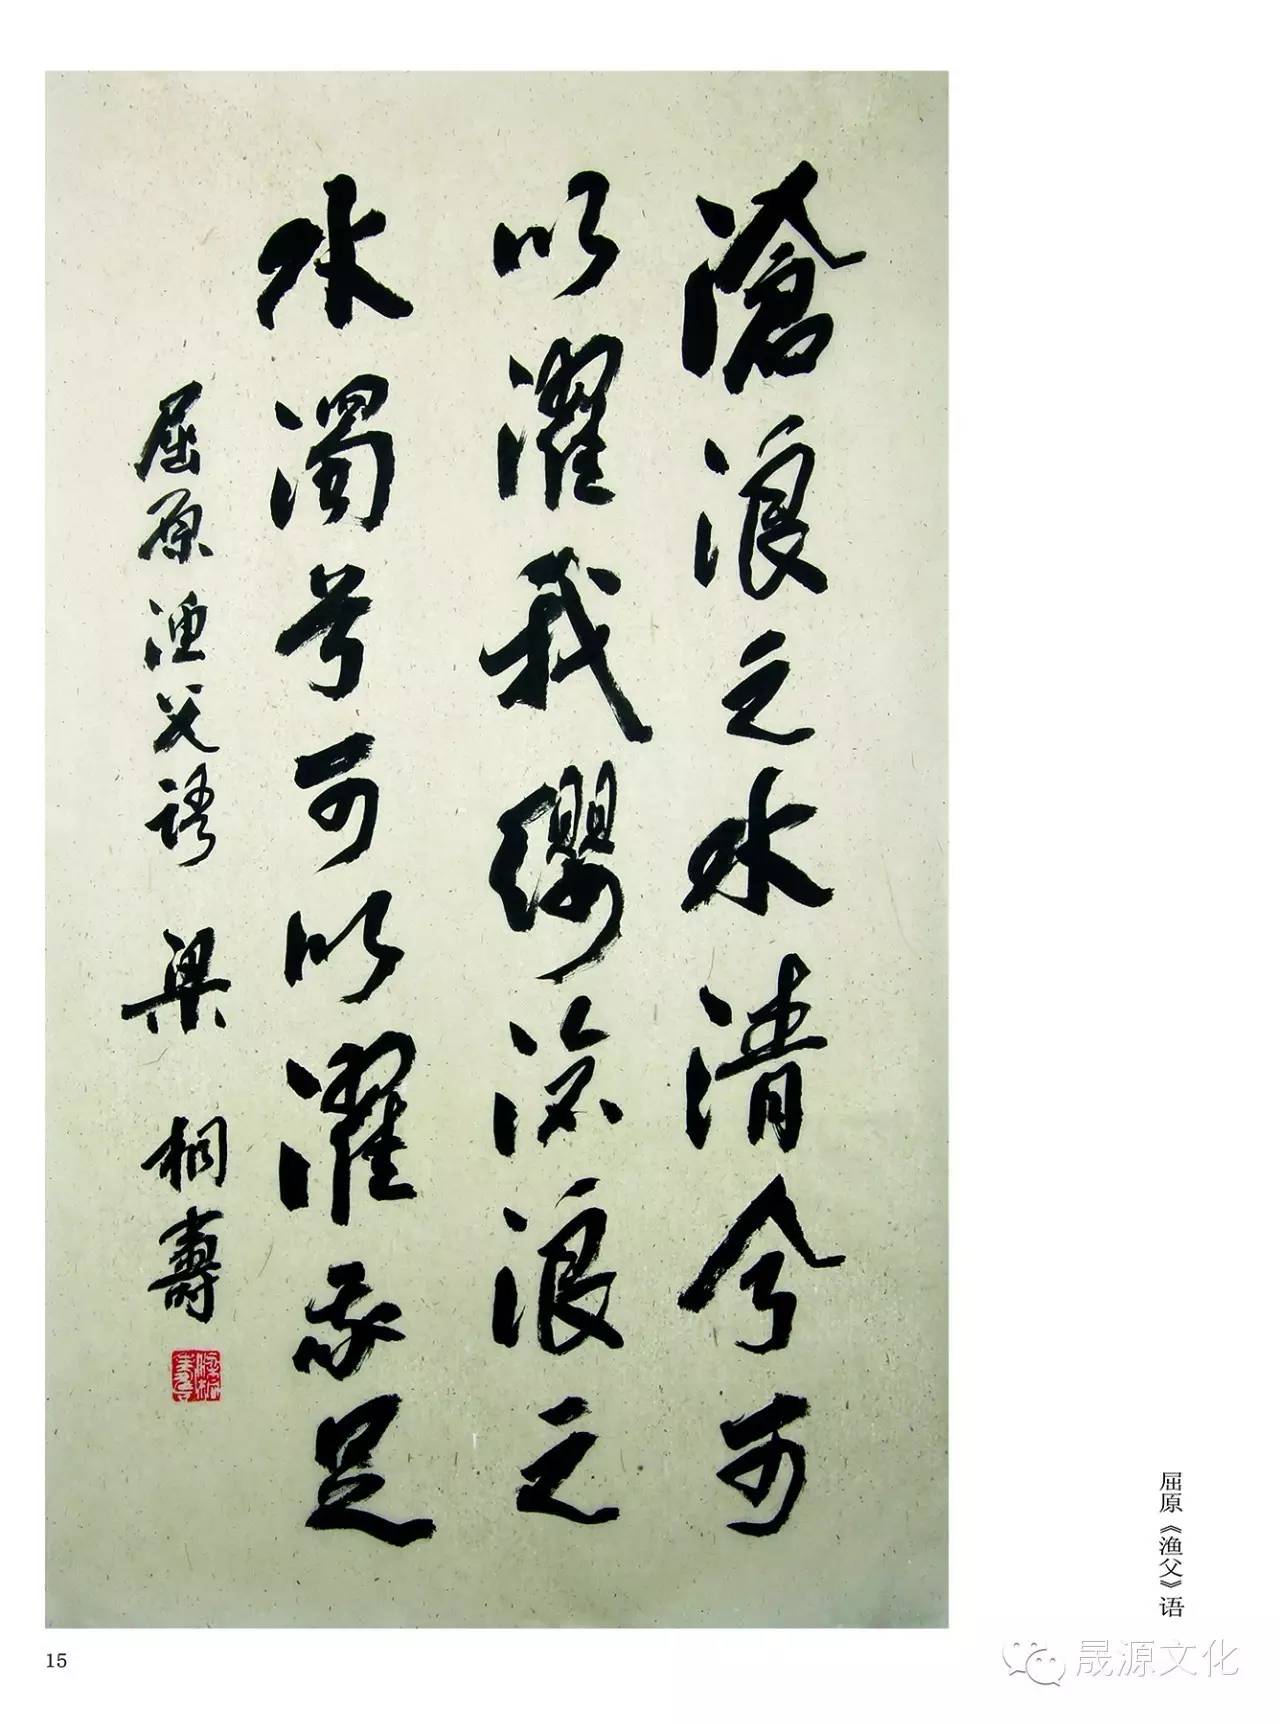 滄浪之水清兮可
以濯我纓滄浪之
水濁兮可以濯我足
屈原漁父語 梁桐壽
屈原《渔父》语
15
晟源文化